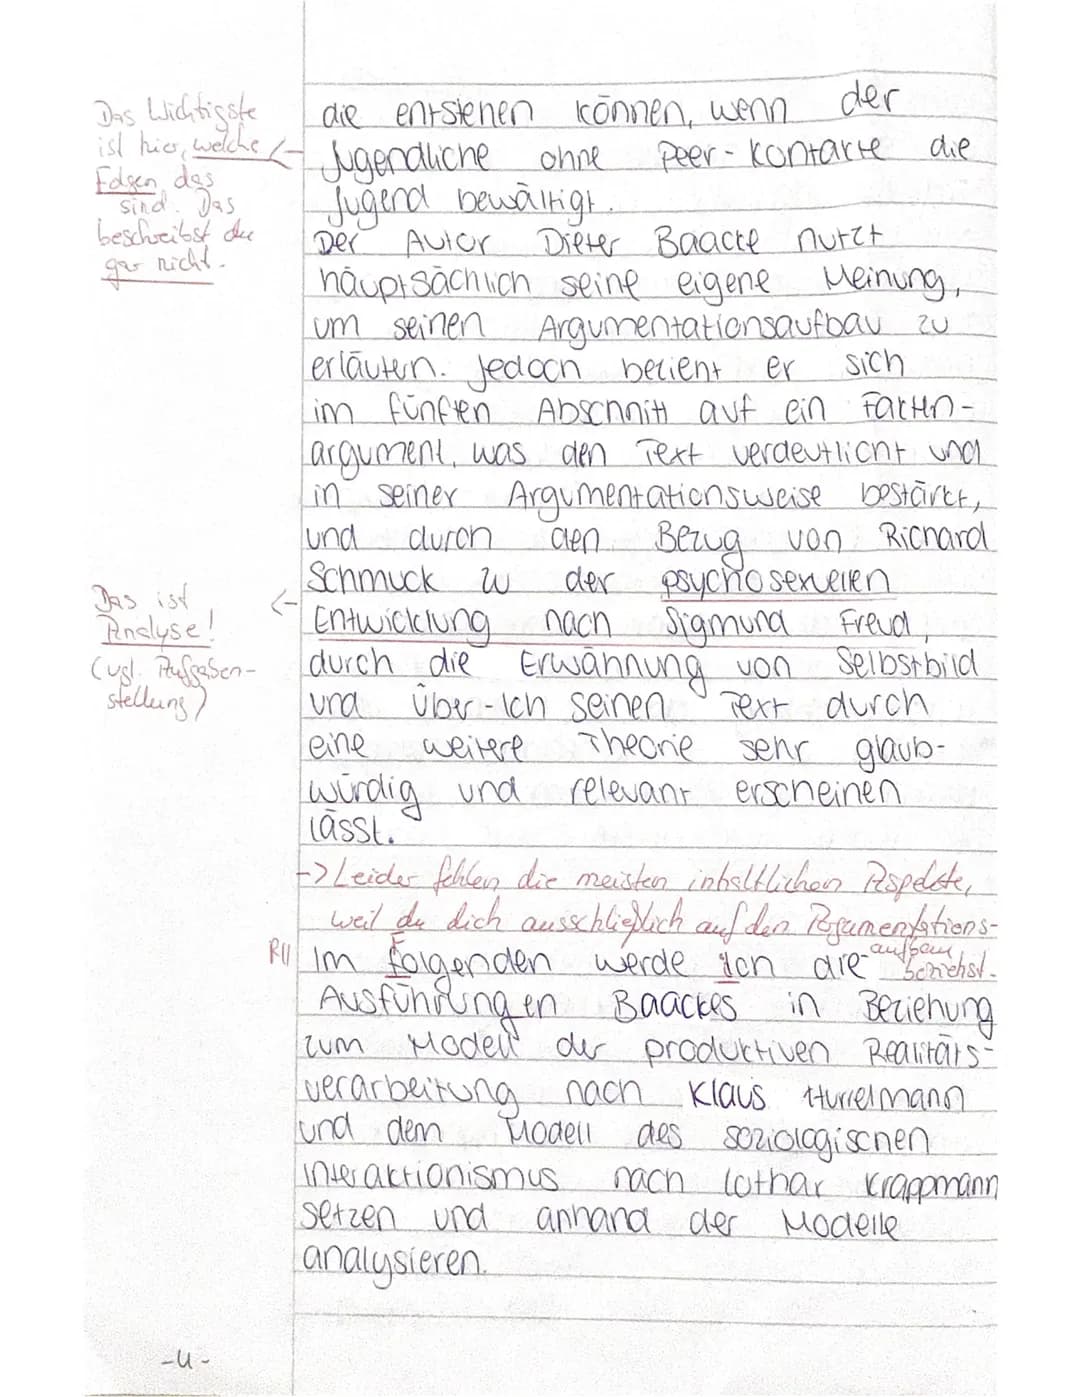 Das Wichtigste
ist hier, welche
Folgen das
sind. Das
beschreibst du
gar nicht.
die entstehen können, wenn der
Jugendliche ohne Peer-Kontakte die
Jugend bewältigt.
Der Autor Dieter Baacke nutzt
hauptsächlich seine eigene Meinung,
um seinen Argumentationsaufbau zu
erläutern. Jedoch bezient er sich
im fünften Abschnitt auf ein Fakten-
argument, was den Text verdeutlicht und
in seiner Argumentationsweise bestärkt,
und durch den Bezug von Richard
Schmuck zu der psychosexuellen
Entwicklung nach Sigmund Freud,
durch die Erwähnung von Selbstbild
und Über-Ich seinen Text durch
eine weitere Theorie sehr glaub-
würdig und relevant erscheinen
lässt.
Das ist
Analyse!
(vgl. Aufgaben-
stellung)
-> Leider fehlen die meisten inhaltlichen Aspekte,
weil du dich ausschließlich auf den Argumentations-
aufbau
beziehst.
R||
Im Folgenden werde ich die
Ausführungen Baackes in Beziehung
zum Modell der produktiven Realitäts-
verarbeitung nach Klaus Hurrelmann
und dem Modell des soziologischen
Interaktionismus nach Lothar Krappmann
setzen und anhand der Modelle
analysieren.
-4-